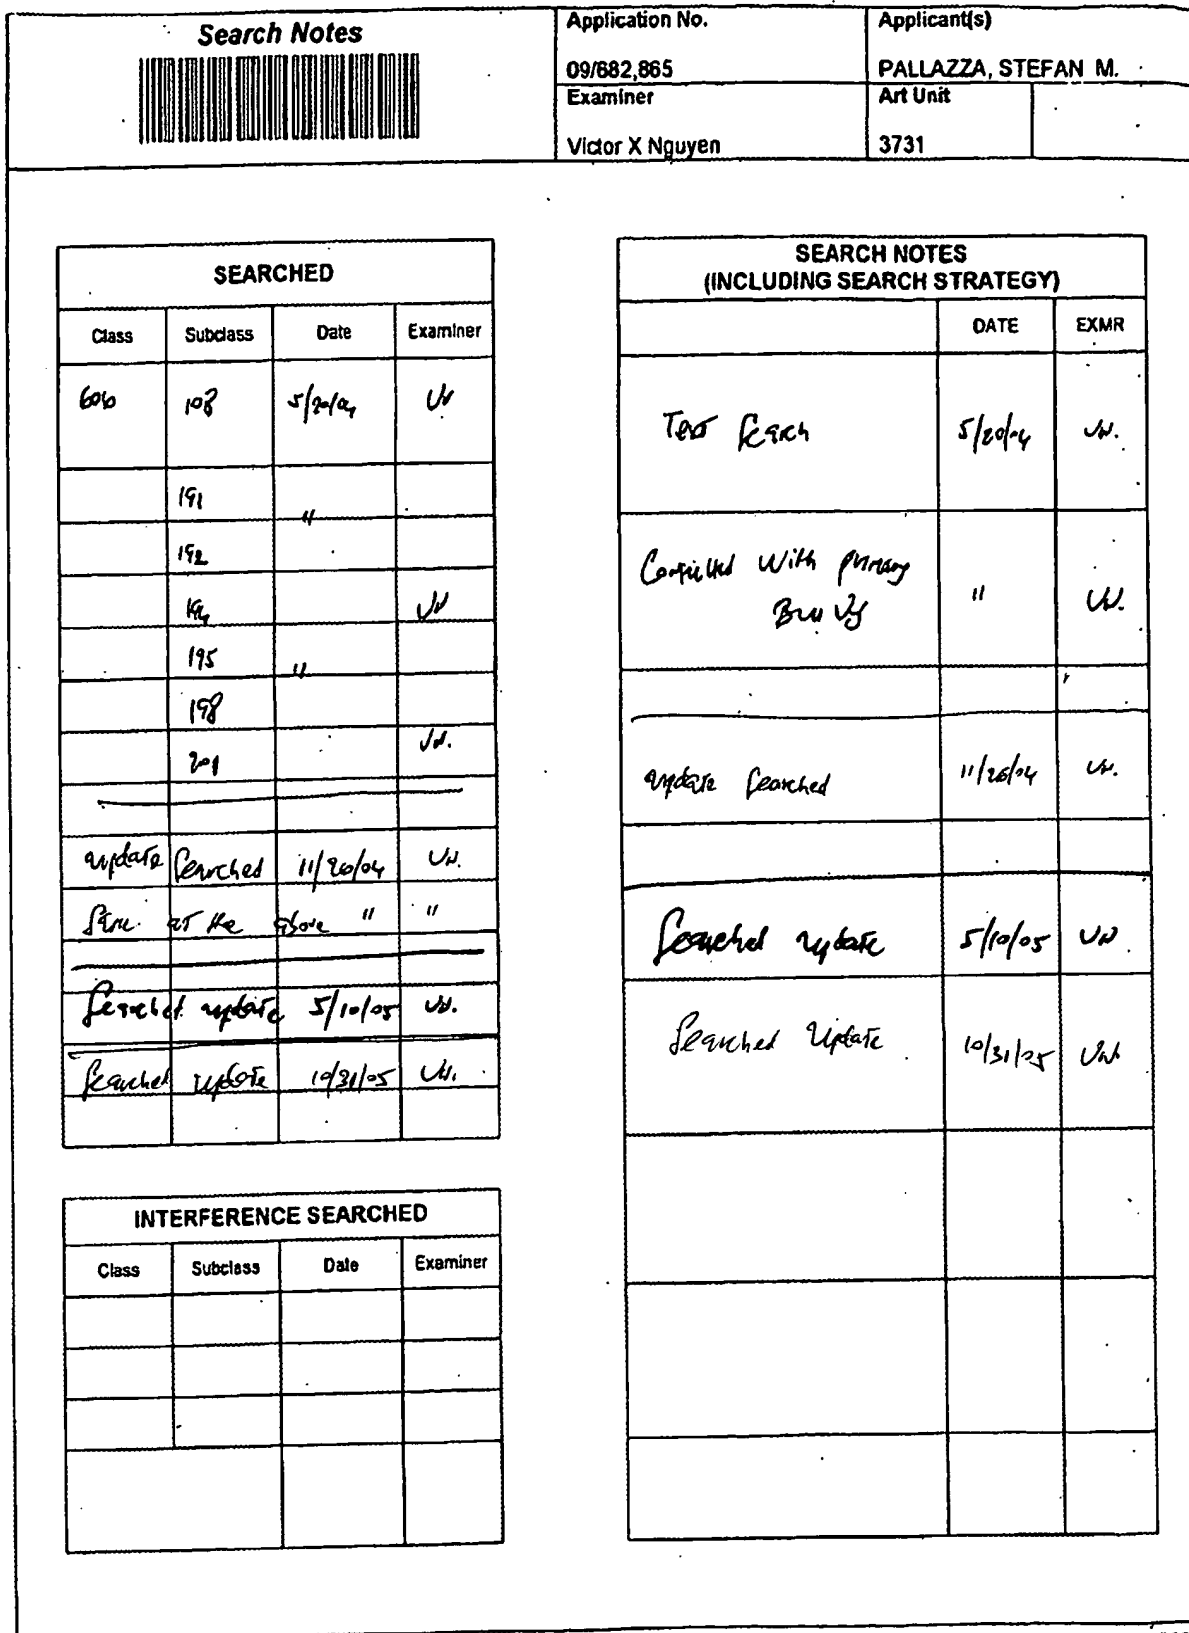 Search Notes
Application No.
09/682,865
Applicant(s)
PALLAZZA, STEFAN M.
Examiner
Victor X Nguyen
Art Unit
3731
SEARCHED
Class Subclass Date Examiner
606 108 5/20/04 VN
191 "
192
194 VN
195 "
198
201 VN.
update Searched 11/20/04 VN.
Same as the above " "
Searched update 5/10/05 VN.
Searched update 10/31/05 VN.
INTERFERENCE SEARCHED
Class Subclass Date Examiner
SEARCH NOTES
(INCLUDING SEARCH STRATEGY)
DATE EXMR
Text Search 5/20/04 VN.
With primary
" VN.
update Searched 11/20/04 VN.
Searched update 5/10/05 VN
Searched Update 10/31/05 VN